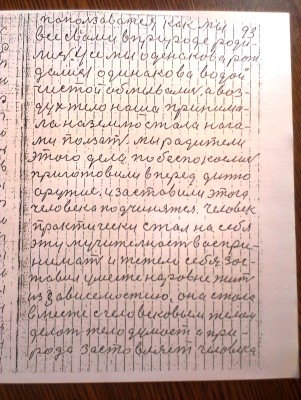 пользоваться как мы 93
все сами в природе роди-
лися и мы одинакова рож
дались одинакова водой
чистой обмывались а воз-
дух тело наша принима-
ла на землю стала нага-
ми ползат мы радители
этого дела побеспокоились
приготовили вперед дитю
оружие и заставили этого
человека подчинятся. человек
практически стал на себя
эту мучителност воспри-
нимать и тяжели себя зас-
тавил уместе наровне жит
из зависемостию, она стала
вместе с человековым телом
делат тело думает а при-
рода заставляет человека